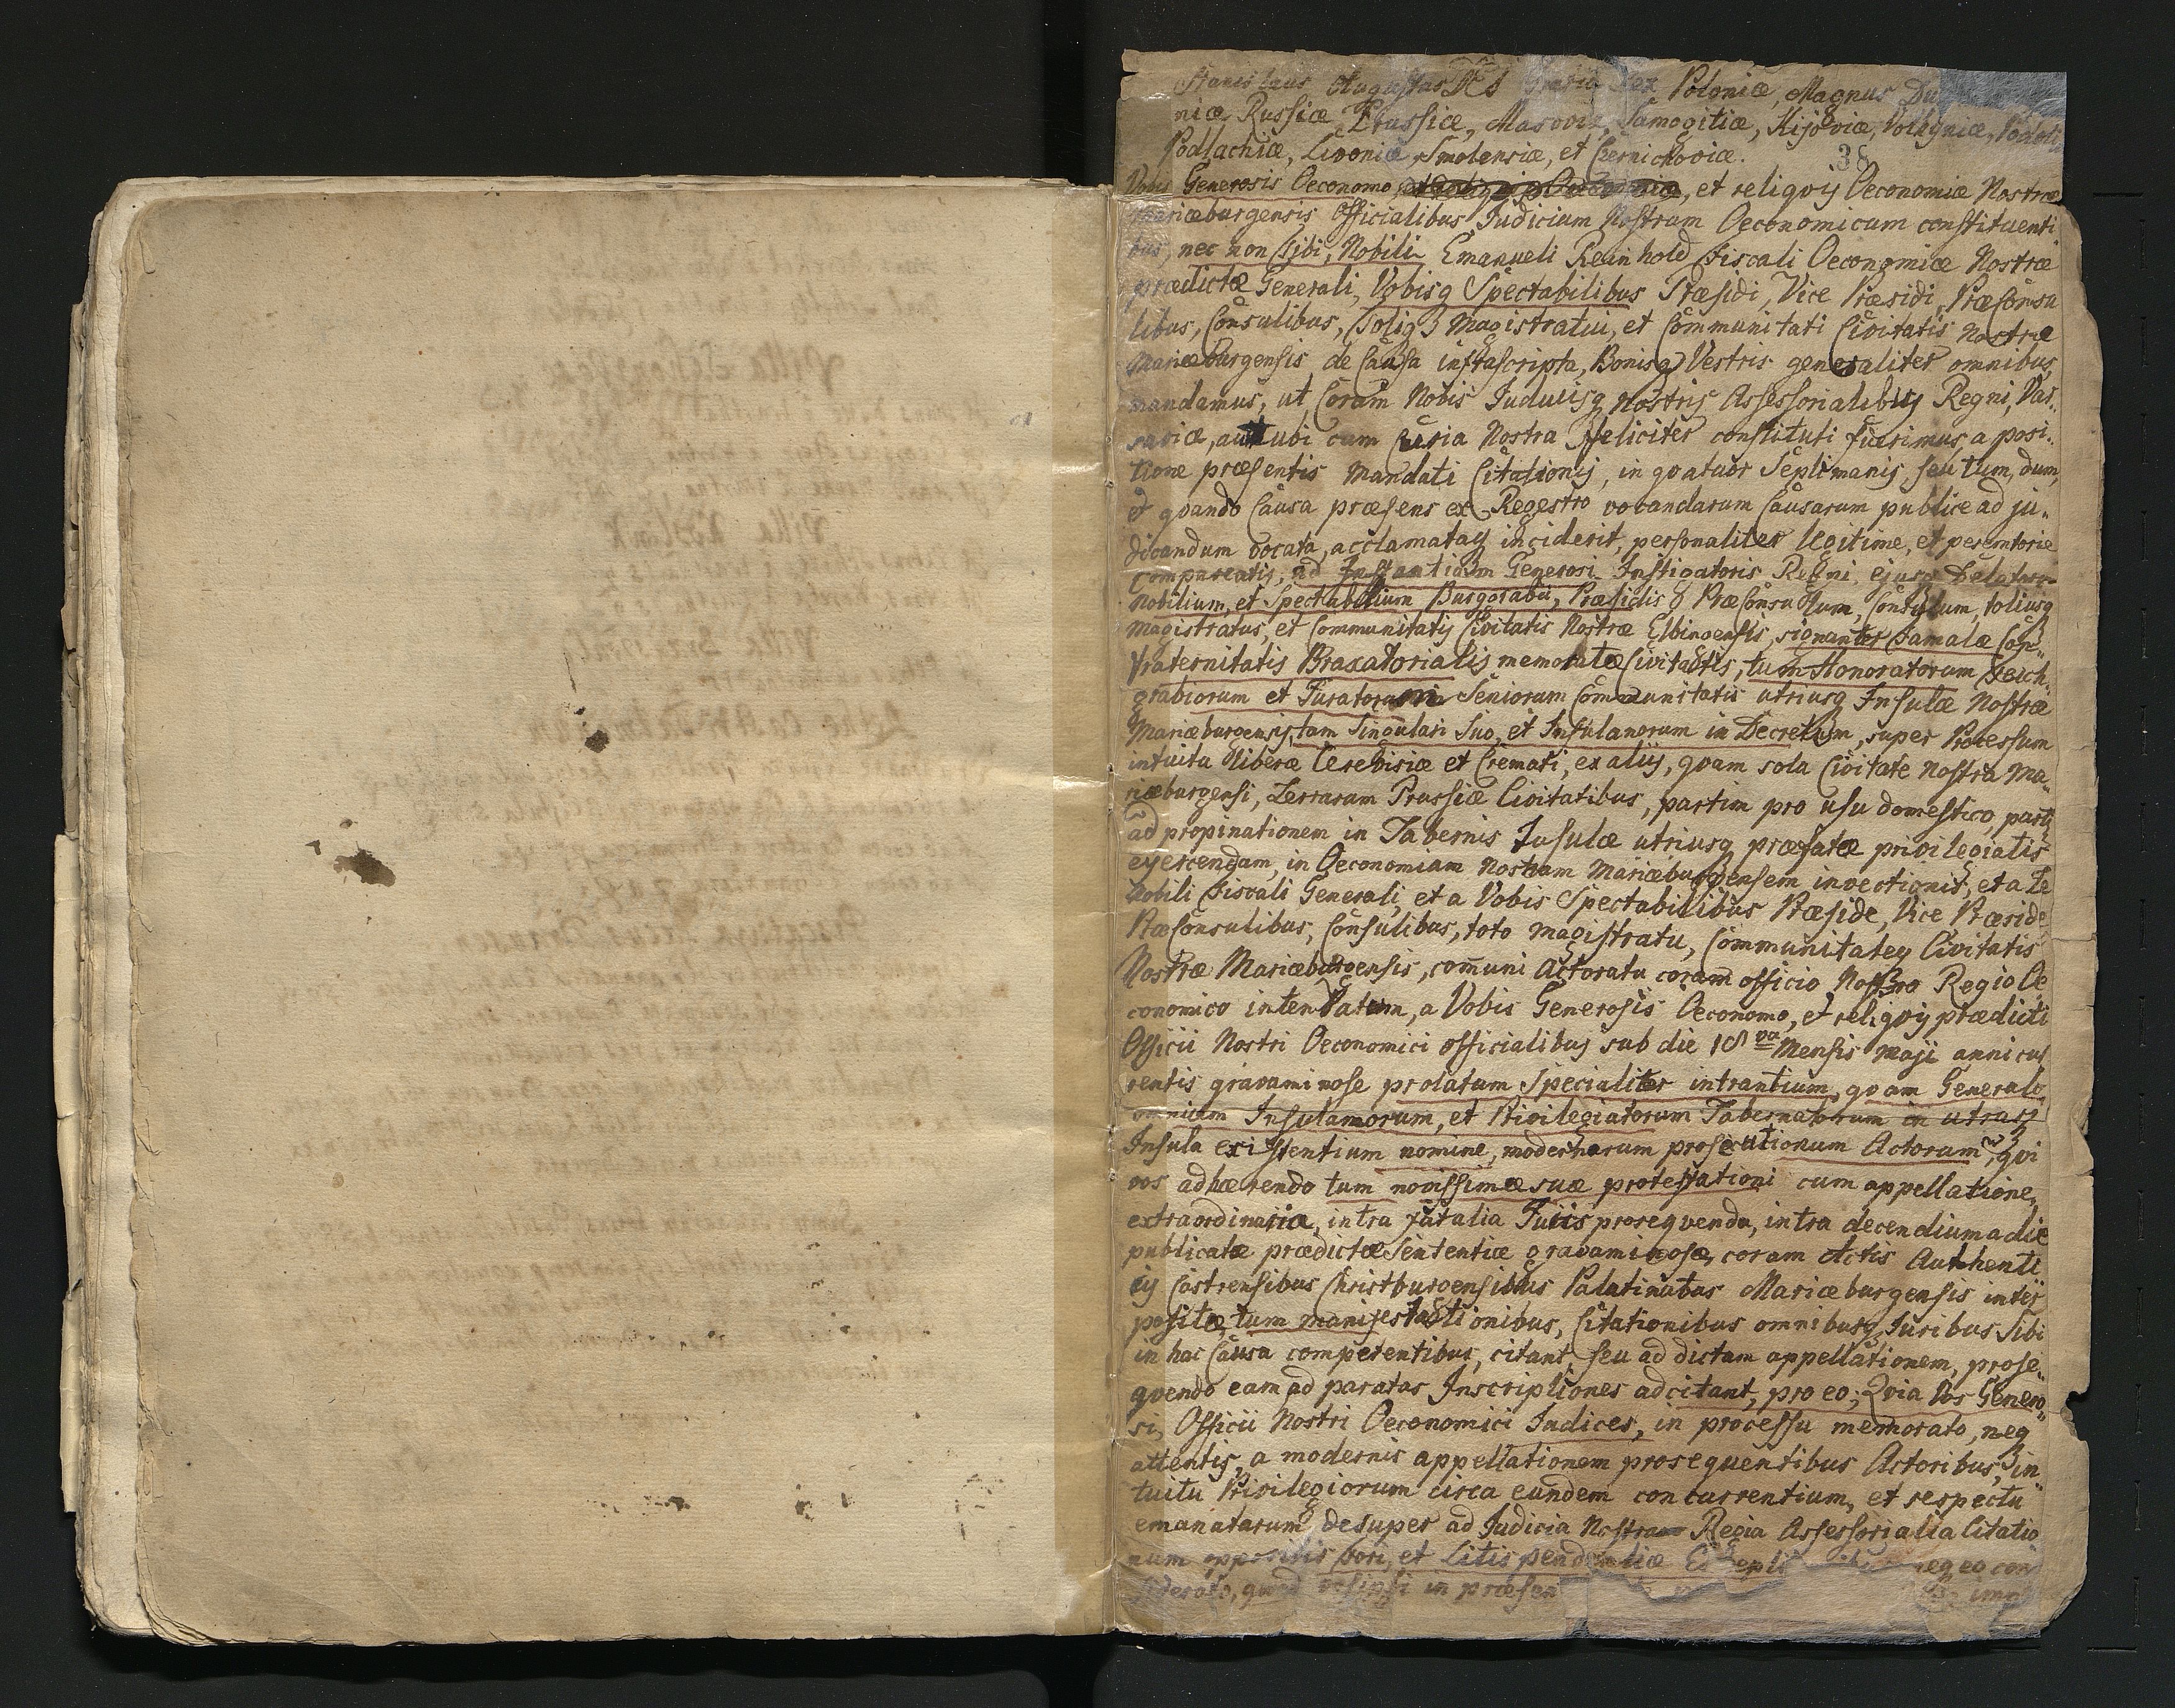 Stanislaus Augustus DEI Gratia Rex Poloniæ, Magnus Du
niæ Russiæ Prussiæ, Masoviæ, Samogitiæ, Kijoviæ, Volhyniæ, Podoli
Podlachiæ, Livoniæ Smolensiæ, et Czernichoviæ.
38
Vobis Generosis Oeconomo, et reliqvij Oeconomiæ Nostræ
Mariæburgensis officialibus, Judicium Nostrum Oeconomicum constituenti
bus, nec non Tibi, Nobili Emanueli Reinhold Fiscali Oeconomiæ Nostræ
prædictæ Generali, Vobisq Spectabilibus Præsidi, Vice Præsidi, Præconsu
libus, Consulibus, totiq3 Magistratui, et Communitati Civitatis Nostræ
Mariæburgensis, de Causa infrascripta, Bonisq Vestris generaliter omnibus,
mandamus, ut Coram Nobis Judicijsq nostrijs Assessorialibus Regni, Var..
saviæ, aut ubi cum Curia Nostra feliciter constituti fuerimus, a posi..
tione præsentis Mandati Citationis, in qvatuor Septimanis, seu tum, dum,
et qvando Causa præsens ex Regestro vocandarum Causarum publice ad ju..
dicandum vocata, acclamataq inciderit, personaliter legitime, et peremtorie
compareatis, ad Instantiam Generosi Instigatoris Regni, ejusq Delatorum
Nobilium, et Spectabilium Burgrabii, Præsidis, Præconsulum, Consulum, totiusq
Magistratus, et Communitatis Civitatis Nostræ Elbingensis, signanter Famatæ Con..
fraternitatis Braxatorialis memoratæ Civitatis, tum Honoratorum Teich..
grabiorum et Juratorum Seniorum Communitatis utriusq Insulæ Nostræ
Mariæburgensis, tam Singulari Suo, et Insulanorum in Decretum, super Processum
intuitu liberæ Cerevisiæ et Cremati, ex aliis, qvam sola Civitate Nostra Ma..
riæburgensi, Terrarum Prussiæ Civitatibus, partim pro usu domestico, parti
ad propinationem in Tabernis Insulæ utriusq præfatæ privilegiatis
exercendam, in Oeconomiam Nostram Mariæburgensem invectionis, et a Te
Nobili Fiscali Generali, et a Vobis Spectabilibus Præside, Vice Præside
Præconsulibus, Consulibus, toto Magistratu, Communitateq Civitatis
Nostræ Mariæburgensis, comuni Actoratu coram officio Nostro Regio Oe
conomico intentatum, a Vobis Generosis Oeconomo, et reliqvij prædicti
Officii Nostri Oeconomici officialibus sub die 18va Mensis Maji anni cur
rentis gravaminose prolatum Specialiter intrantium, qvam Generale
omnium Insulanorum, et Privilegiatorum Tabernatorum in utraq3
Insula existentium nomine, modernarum prosecutionum Actorum, qvi
vos adhærendo tum novissimæ suæ protestationi cum appellatione,
extraordinaria, intra fatalia Juris proseqvenda, intra decendium a die
publicatæ prædictæ Sententiæ gravaminosæ, coram Actis Authenti
cis Castrensibus Christburgensibus Palatinatus Mariæburgensis inter
positæ, tum manifestationibus, Citationibus omnibusq Juribus Sibi
in hac Causa competentibus, citant, seu ad dictam appellationem, prose..
qvendo eam ad paratas Inscriptiones adcitant, pro eo; Qvia Vos Genero..
si, Officii Nostri Oeconomici Judices, in processu memorato, neq
attentis, a modernis appellationem prosequentibus Actoribus, in
tuitu Privilegiorum circa eundem concurrentium, et respectu
emanatarum desuper ad Judicia Nostra Regia Assessorialia Citatio
num oppositis Fori, et Litis pendentiæ Excepti neq eo con
siderato, quod vosipsi in præsen imo